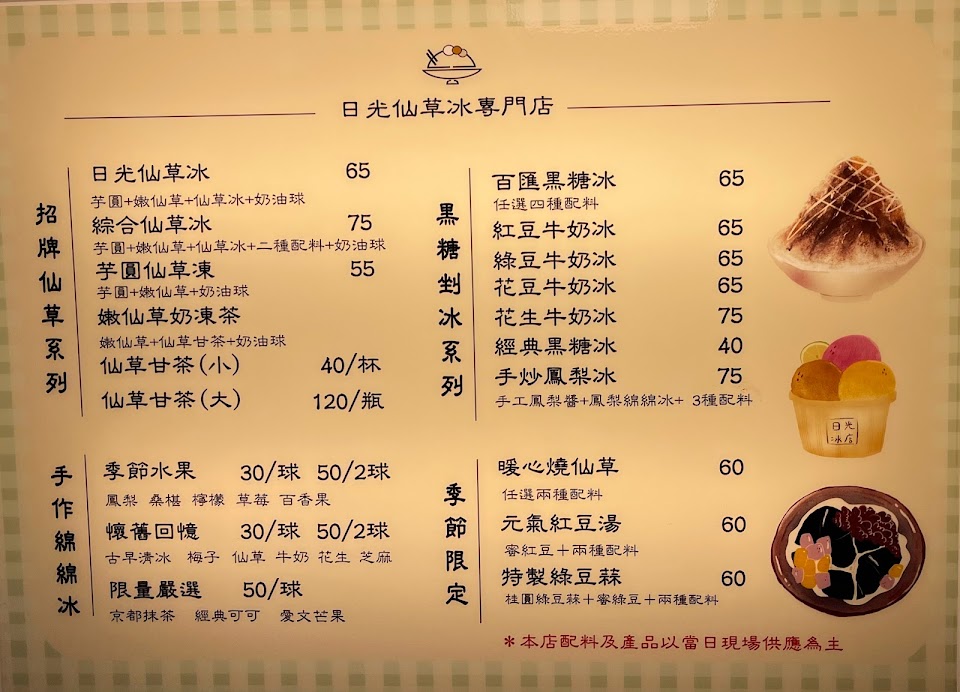 日光仙草冰専門店
招牌仙草系列
日光仙草冰 65
芋圓+嫩仙草+仙草冰+奶油球
綜合仙草冰 75
芋圓+嫩仙草+仙草冰+二種配料+奶油球
芋圓仙草凍 55
芋圓+嫩仙草+奶油球
嫩仙草奶凍茶
嫩仙草+仙草甘茶+奶油球
仙草甘茶(小) 40/杯
仙草甘茶(大) 120/瓶
黑糖剉冰系列
百匯黑糖冰 65
任選四種配料
紅豆牛奶冰 65
綠豆牛奶冰 65
花豆牛奶冰 65
花生牛奶冰 75
經典黑糖冰 40
手炒鳳梨冰 75
手工鳳梨醬+鳳梨綿綿冰+ 3種配料
手作綿綿冰
季節水果 30/球 50/2球
鳳梨 桑椹 檸檬 草莓 百香果
懷舊回憶 30/球 50/2球
古早清冰 梅子 仙草 牛奶 花生 芝麻
限量嚴選 50/球
京都抹茶 經典可可 愛文芒果
季節限定
暖心燒仙草 60
任選兩種配料
元氣紅豆湯 60
蜜紅豆+兩種配料
特製綠豆蒜 60
桂圓綠豆蒜+蜜綠豆+兩種配料
日光冰店
*本店配料及產品以當日現場供應為主